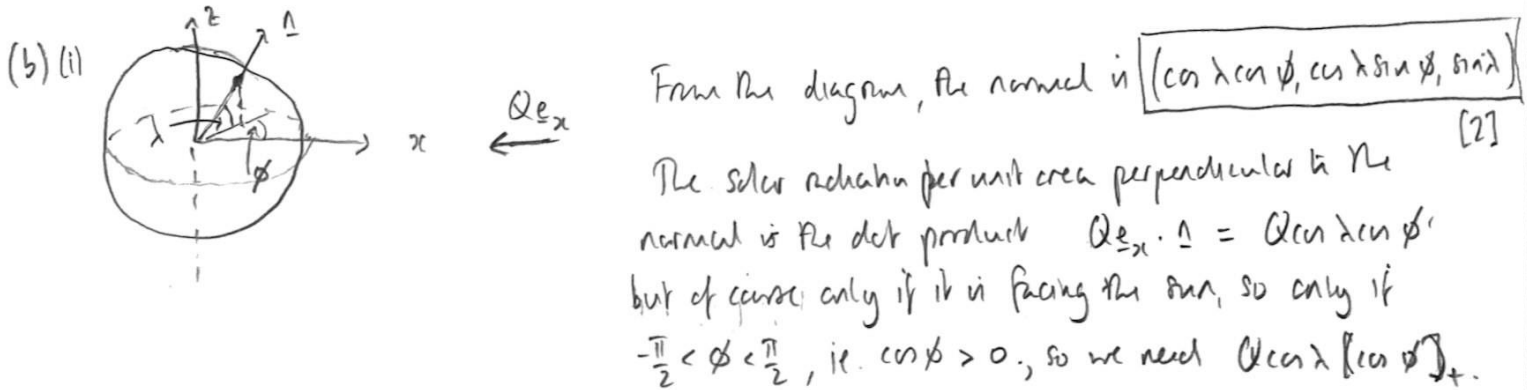 (b) (i)
z
n
λ
ϕ
x
Qe_x
From the diagram, the normal is (cos λ cos ϕ, cos λ sin ϕ, sin λ)
[2]
The solar radiation per unit area perpendicular to the
normal is the dot product Qe_x · n = Q cos λ cos ϕ.
but of course only if it is facing the sun, so only if
-π/2 < ϕ < π/2, ie. cos ϕ > 0., so we need Q cos λ [cos ϕ]_+.